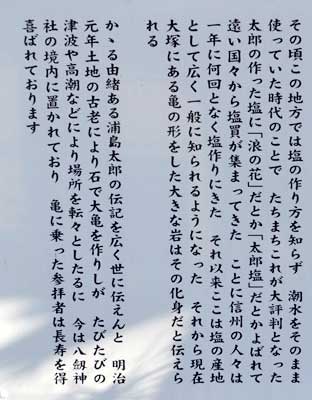 その頃この地方では塩の作り方を知らず　潮水をそのまま
使っていた時代のことで　たちまちこれが大評判となった
太郎の作った塩に「浪の花」だとか「太郎塩」だとかよばれて
遠い国々から塩買が集まってきた　ことに信州の人々は
一年に何回となく塩作りにきた　それ以来ここは塩の産地
として広く一般に知られるようになった　それから現在
大塚にある亀の形をした大きな岩はその化身だと伝えら
れる
かゝる由緒ある浦島太郎の伝記を広く世に伝えんと　明治
元年土地の古老により石で大亀を作りしが　たびたびの
津波や高潮などにより場所を転々としたるに　今は八剱神
社の境内に置かれており　亀に乗った参拝者は長寿を得
喜ばれております